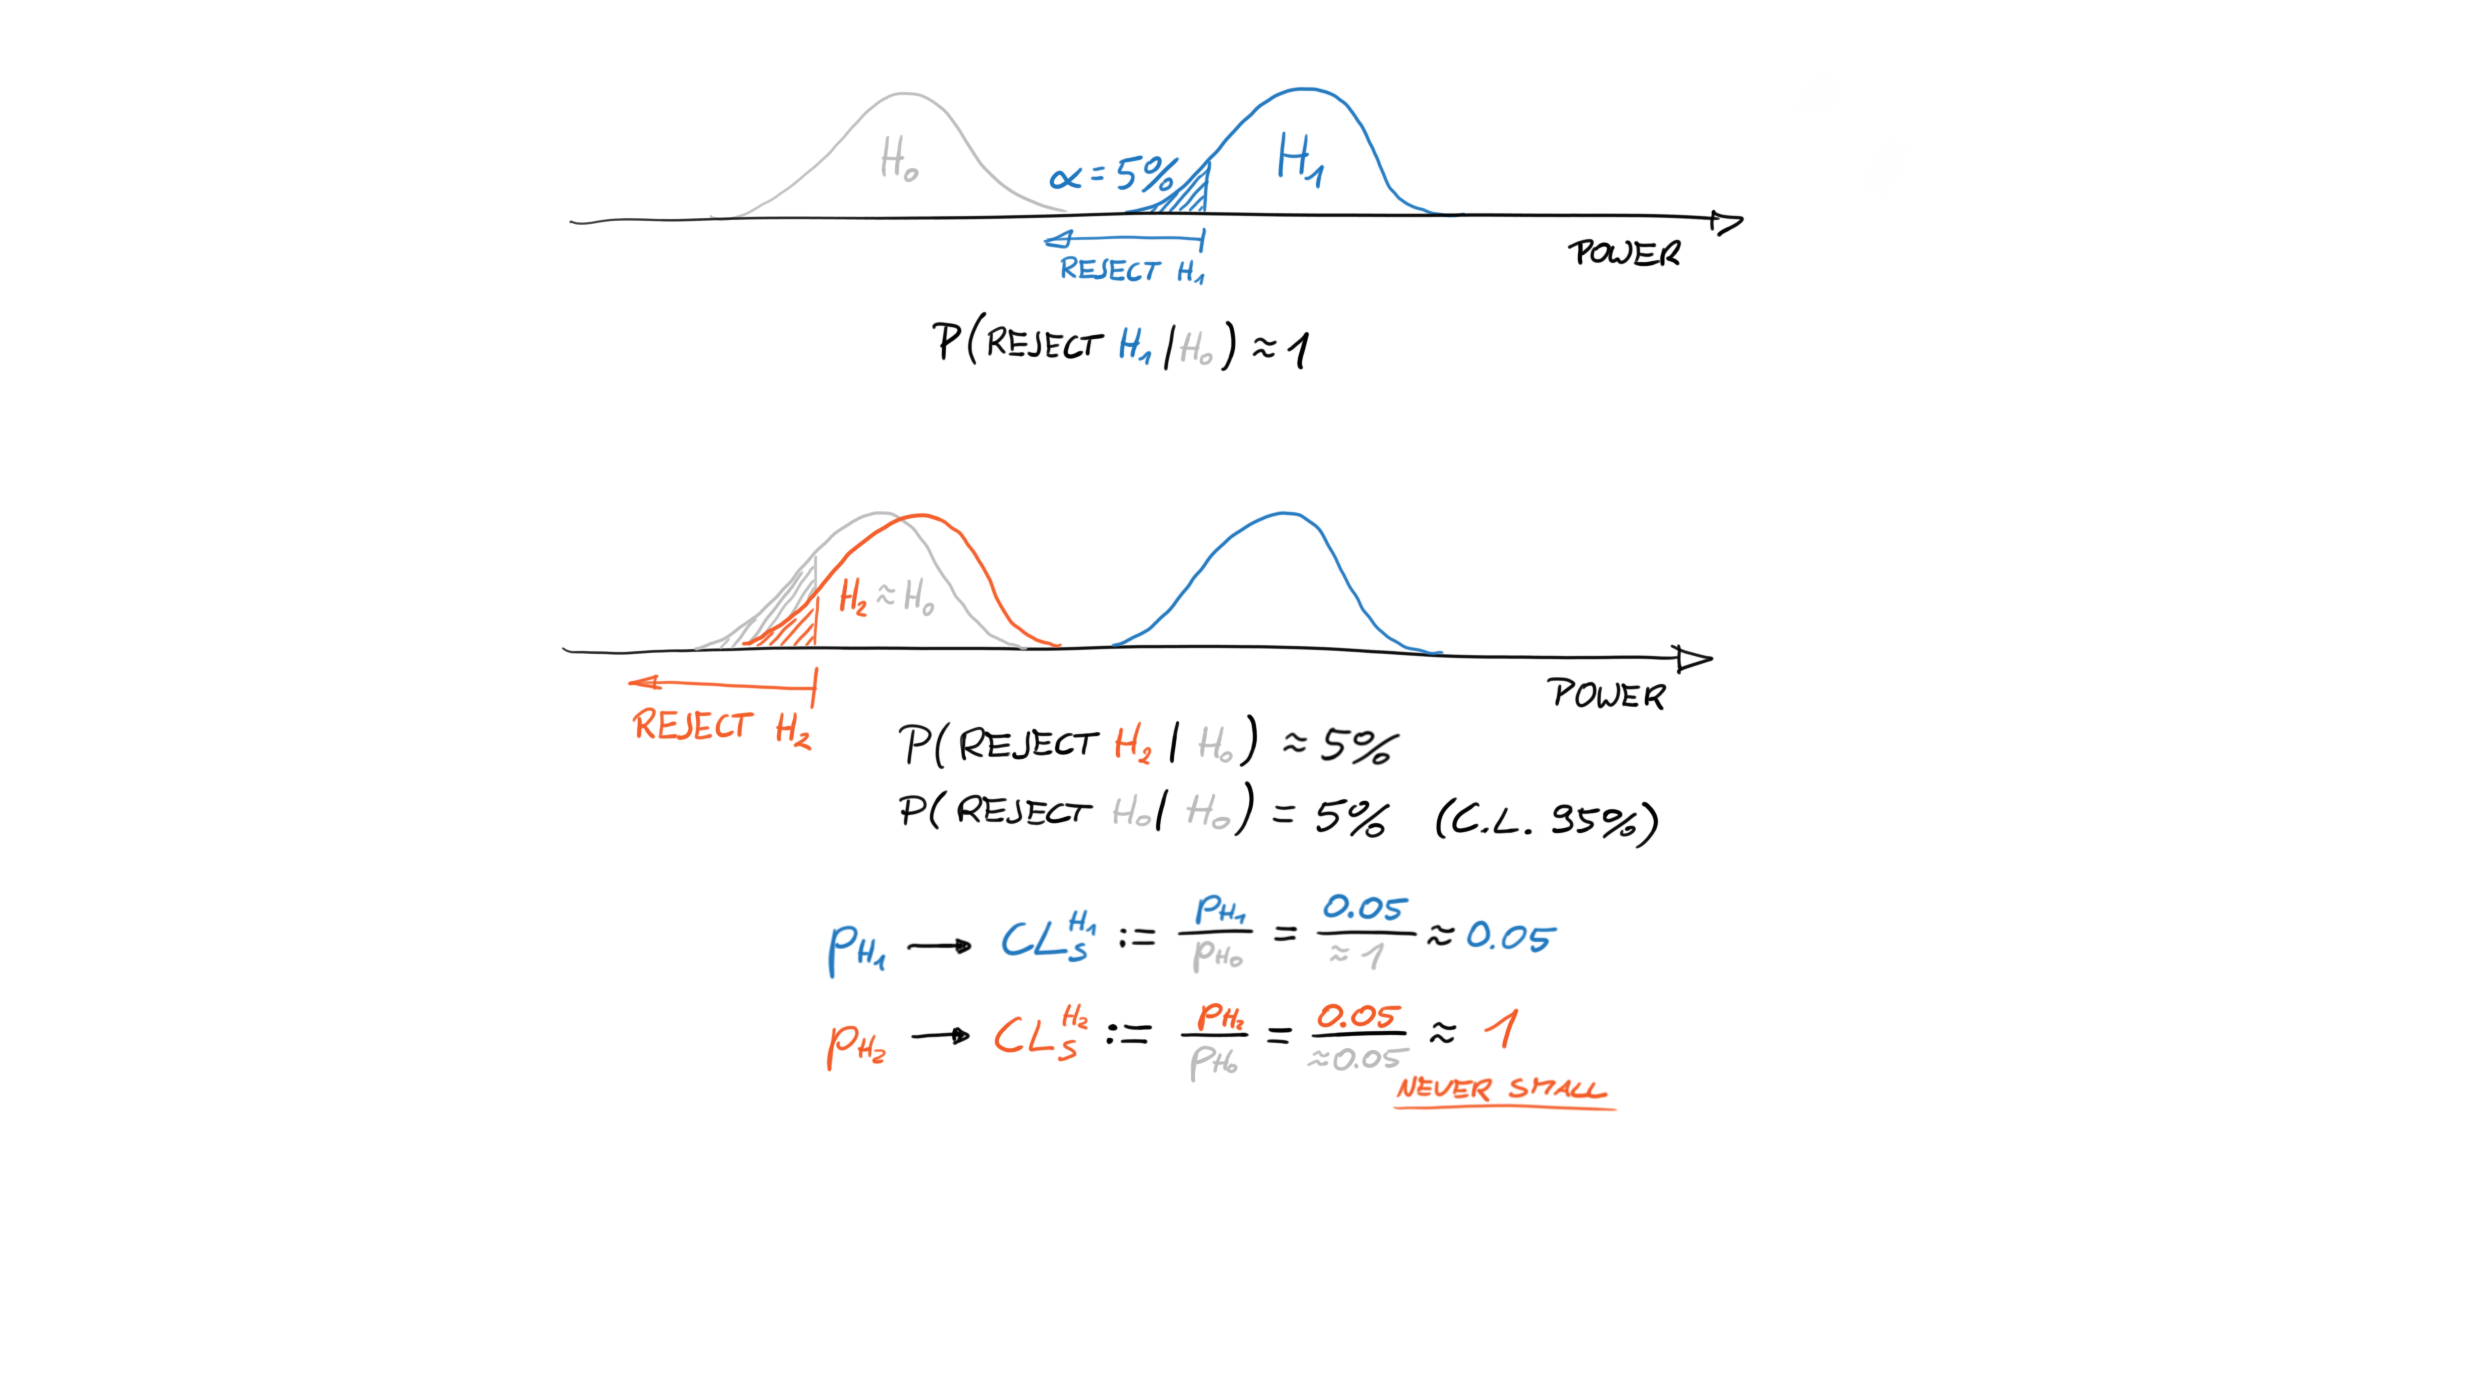 H₀
α = 5%
H₁
REJECT H₁
POWER
P(REJECT H₁ | H₀) ≈ 1
H₂ ≈ H₀
REJECT H₂
POWER
P(REJECT H₂ | H₀) ≈ 5%
P(REJECT H₀ | H₀) = 5% (C.L. 95%)
p_H₁ → CL_S^H₁ := p_H₁ / p_H₀ = 0.05 / ≈ 1 ≈ 0.05
p_H₂ → CL_S^H₂ := p_H₂ / p_H₀ = 0.05 / ≈ 0.05 ≈ 1
NEVER SMALL